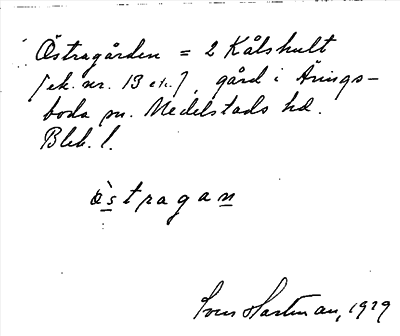 Östragården = 2 Kålshult
[ek. nr. 13 etc.], gård i Årings-
boda sn. Medelstads hd.
Blek. l.
östragan
Sven Hartman, 1929